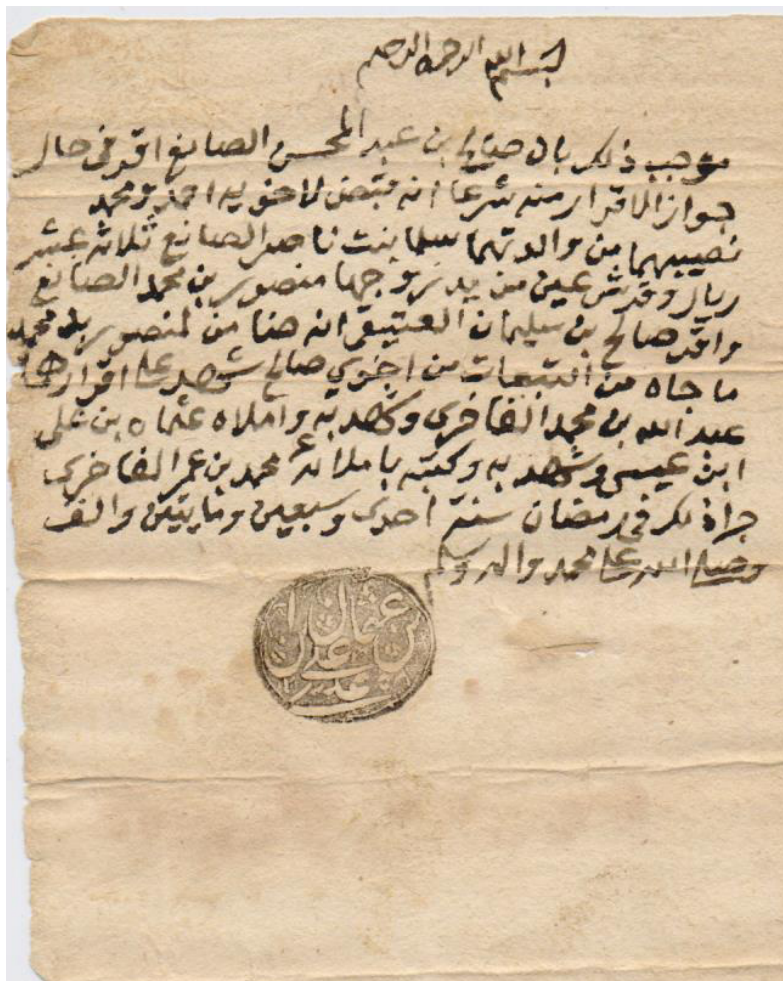 بسم الله الرحمن الرحيم
موجب ذلكر بان صالح بن عبد المحسن الصايغ اقر في حال
جواز الاقرار منه شرعا انه قبض لاخويه احمد ومحمد
نصيبهما من والدتهما سلما بنت ناصر الصانع ثلاثة عشر
ريال وقرش عين من يد زوجها منصور بن محمد الصانع
واقر صالح بن سليمان العتيقي انه ضامن لمنصور بن محمد
ما جاه من التبعات من اخوي صالح شهد على اقرارهما
عبد الله بن محمد الفاخري وشهد به واملاه عثمان بن علي
ابن عيسى وشهد به وكتبه باملائه محمد بن عمر الفاخري
جرا ذلكر في رمضان سنة احدى وسبعين ومايتين والف
وصلى الله على محمد واله وسلم
عثمان